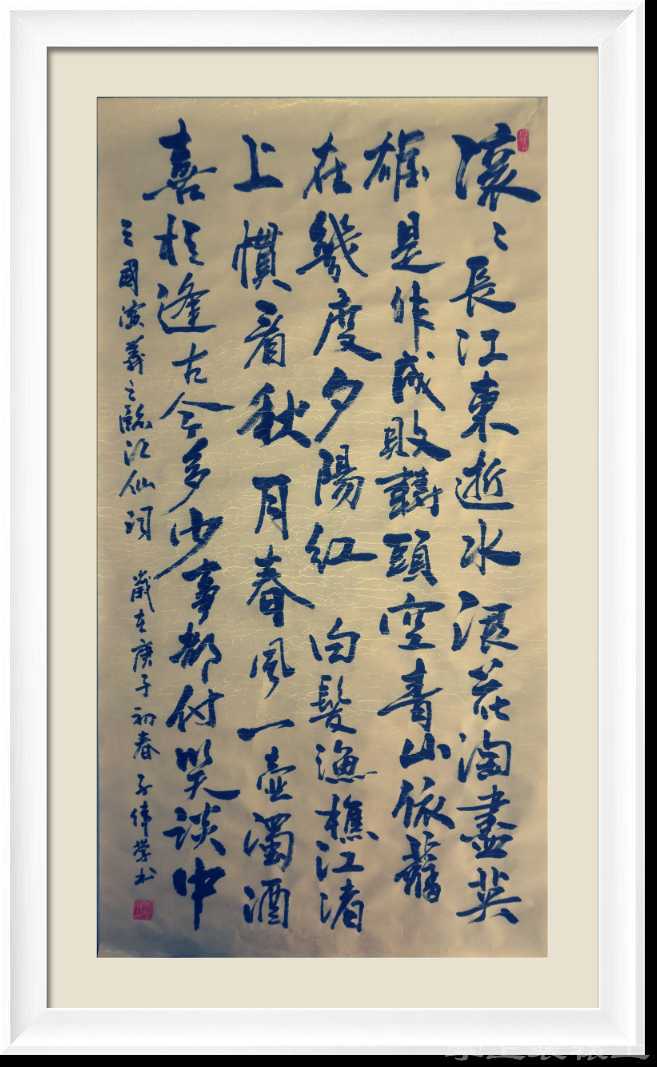 滚〻長江東逝水浪花淘盡英
雄是非成敗轉頭空青山依舊
在幾度夕陽紅白髮漁樵江渚
上慣看秋月春風一壺濁酒
喜相逢古今多少事都付笑談中
三國演義之臨江仙詞 歲在庚子初春 子緯學书